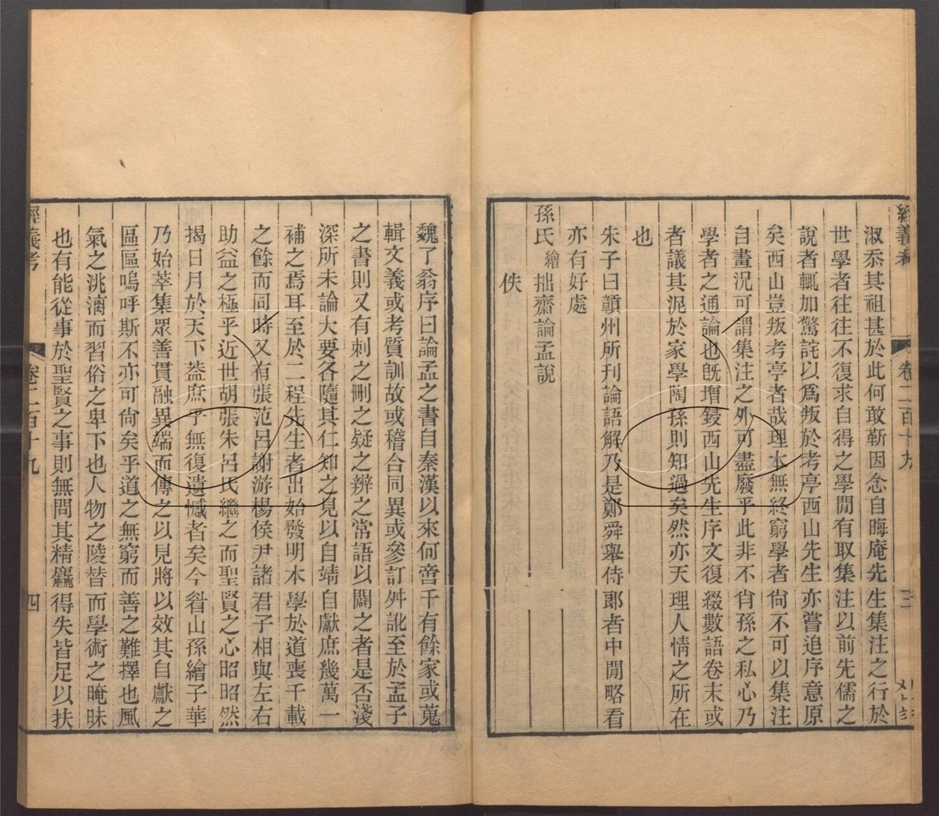 經義考
卷二百十九
三
淑忝其祖甚於此何敢靳因念自晦庵先生集注之行於
世學者往往不復求自得之學閒有取集注以前先儒之
說者輒加驚詫以爲叛於考亭西山先生亦嘗追序意原
矣西山豈叛考亭者哉理本無終窮學者尙不可以集注
自畫況可謂集注之外可盡廢乎此非不肖孫之私心乃
學者之通論也旣增鋟西山先生序文復綴數語卷末或
者議其泥於家學陶孫則知過矣然亦天理人情之所在
也
朱子曰贛州所刊論語解乃是鄭舜舉侍郞者中閒略看
亦有好處
孫氏繪拙齋論孟說
佚
魏了翁序曰論孟之書自秦漢以來何啻千有餘家或蒐
輯文義或考質訓故或稽合同異或參訂舛訛至於孟子
之書則又有刺之刪之疑之辨之常語以闢之者是否淺
深所未論大要各隨其仁知之見以自靖自獻庶幾萬一
補之焉耳至於二程先生者出始發明本學於道喪千載
之餘而同時又有張范呂謝游楊侯尹諸君子相與左右
助益之極乎近世胡張朱呂氏繼之而聖賢之心昭昭然
揭日月於天下葢庶乎無復遺憾者矣今眷山孫繪子華
乃始萃集眾善貫融異端而傳之以見將以效其自獻之
區區嗚呼斯不亦可尙矣乎道之無窮而善之難擇也風
氣之洮漓而習俗之卑下也人物之陵替而學術之晻昧
也有能從事於聖賢之事則無問其精麤得失皆足以扶
經義考
卷二百十九
四